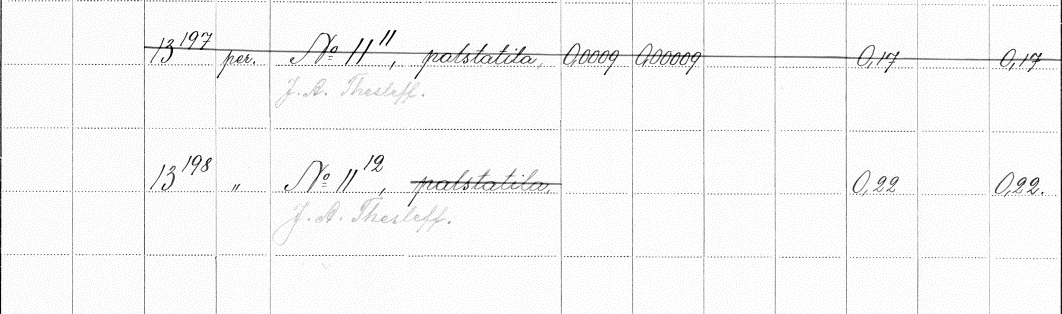 13¹⁹⁷ per. Nº 11¹¹, palstatila, 0,0009 0,00009 0,17 0,17
J. A. Thesleff.
13¹⁹⁸ „ Nº 11¹², palstatila, 0,22 0,22.
J. A. Thesleff.